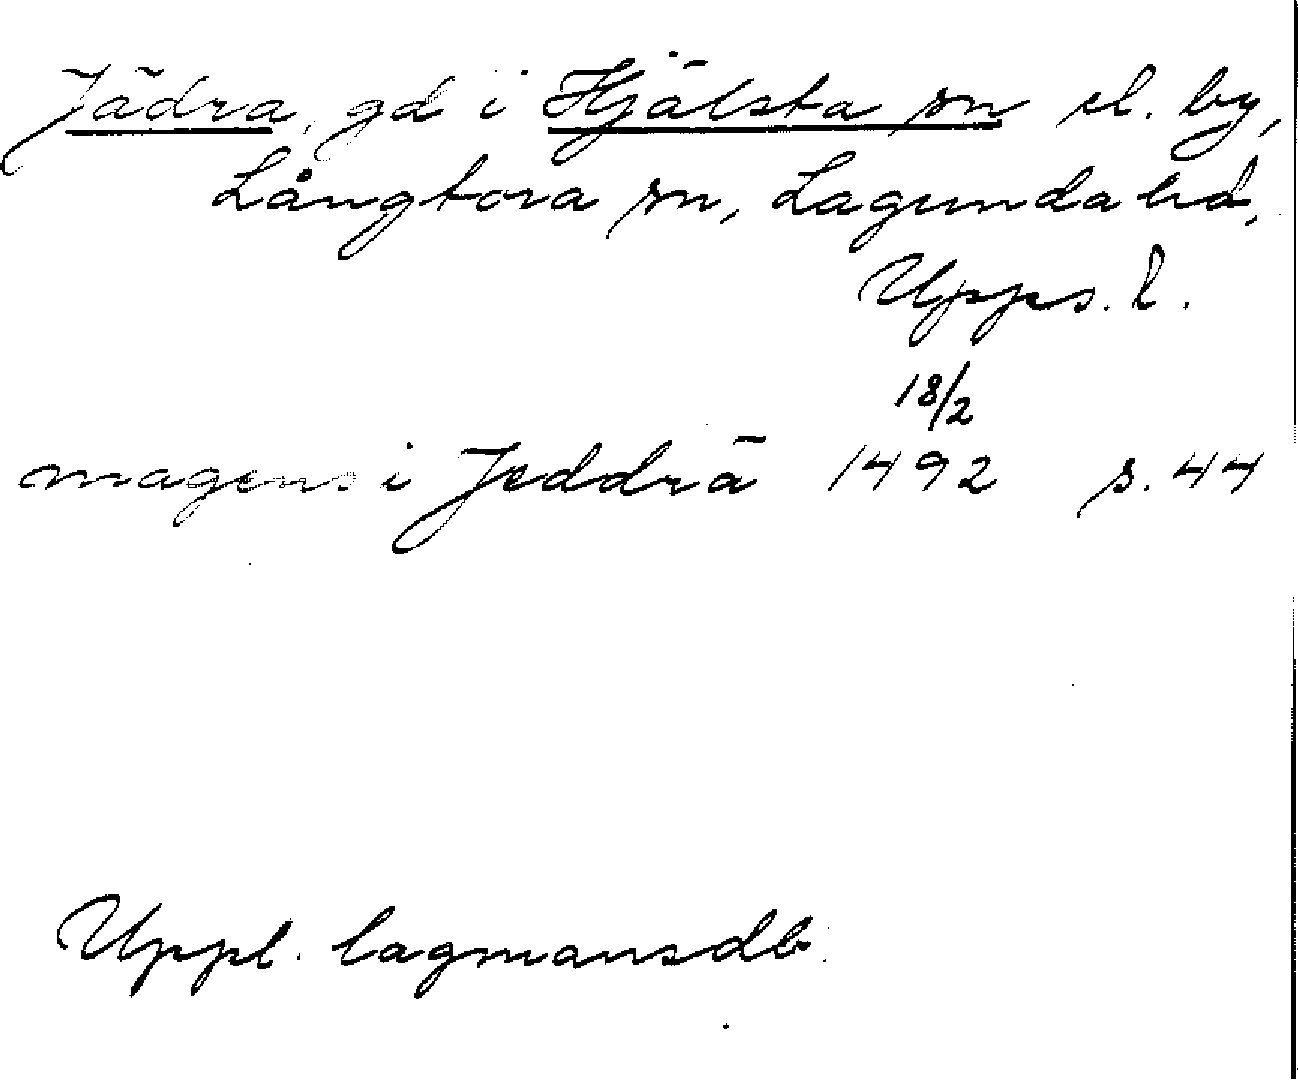 Jädra, gd i Hjälsta sn el. by,
Långtora sn, Lagunda hd,
Upps. l.
18/2
magens i Jeddrā 1492 s. 44
Uppl. lagmansdb.